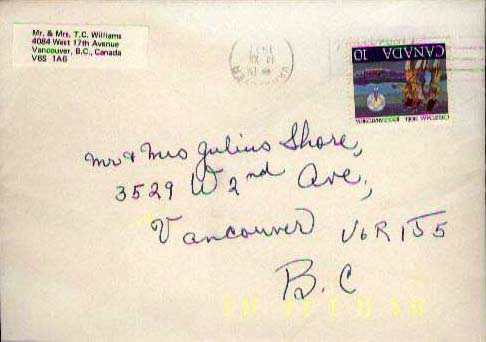 Mr. & Mrs. T.C. Williams
4084 West 17th Avenue
Vancouver, B.C., Canada
V6S 1A6
CANADA 10
Mr & Mrs Julius Shore,
3529 W 2nd Ave,
Vancouver V6R 1J5
B.C